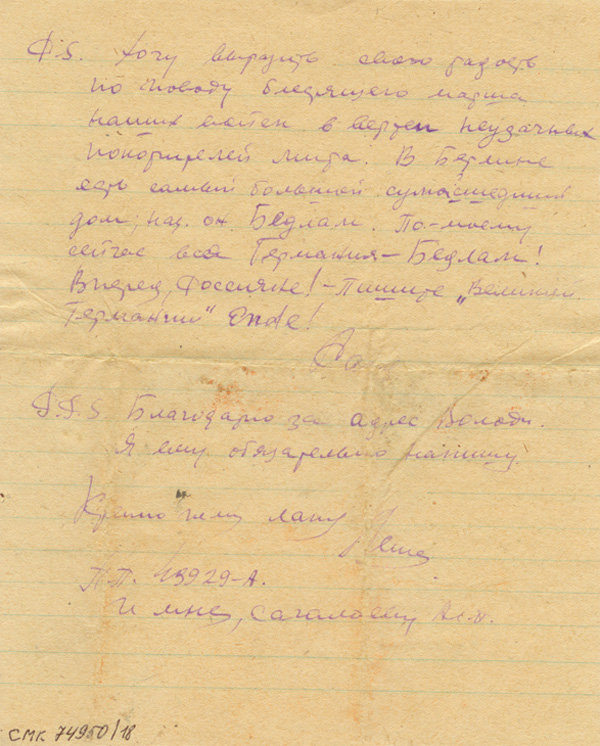 P.S. Хочу выразить свою радость
по поводу блестящего марша
наших войск в вертеп неудачных
покорителей мира. В Берлине
есть самый большой сумасшедший
дом, наз. он Бедлам. По-моему
сейчас вся Германия – Бедлам!
Вперед, Россияне! – Пишите „Великой
Германии“ Ende!
P.P.S. Благодарю за адрес Володи.
Я ему обязательно напишу.
Крепко жму лапу
П.П. 19929-А.
И мне,
СМК 74950/18